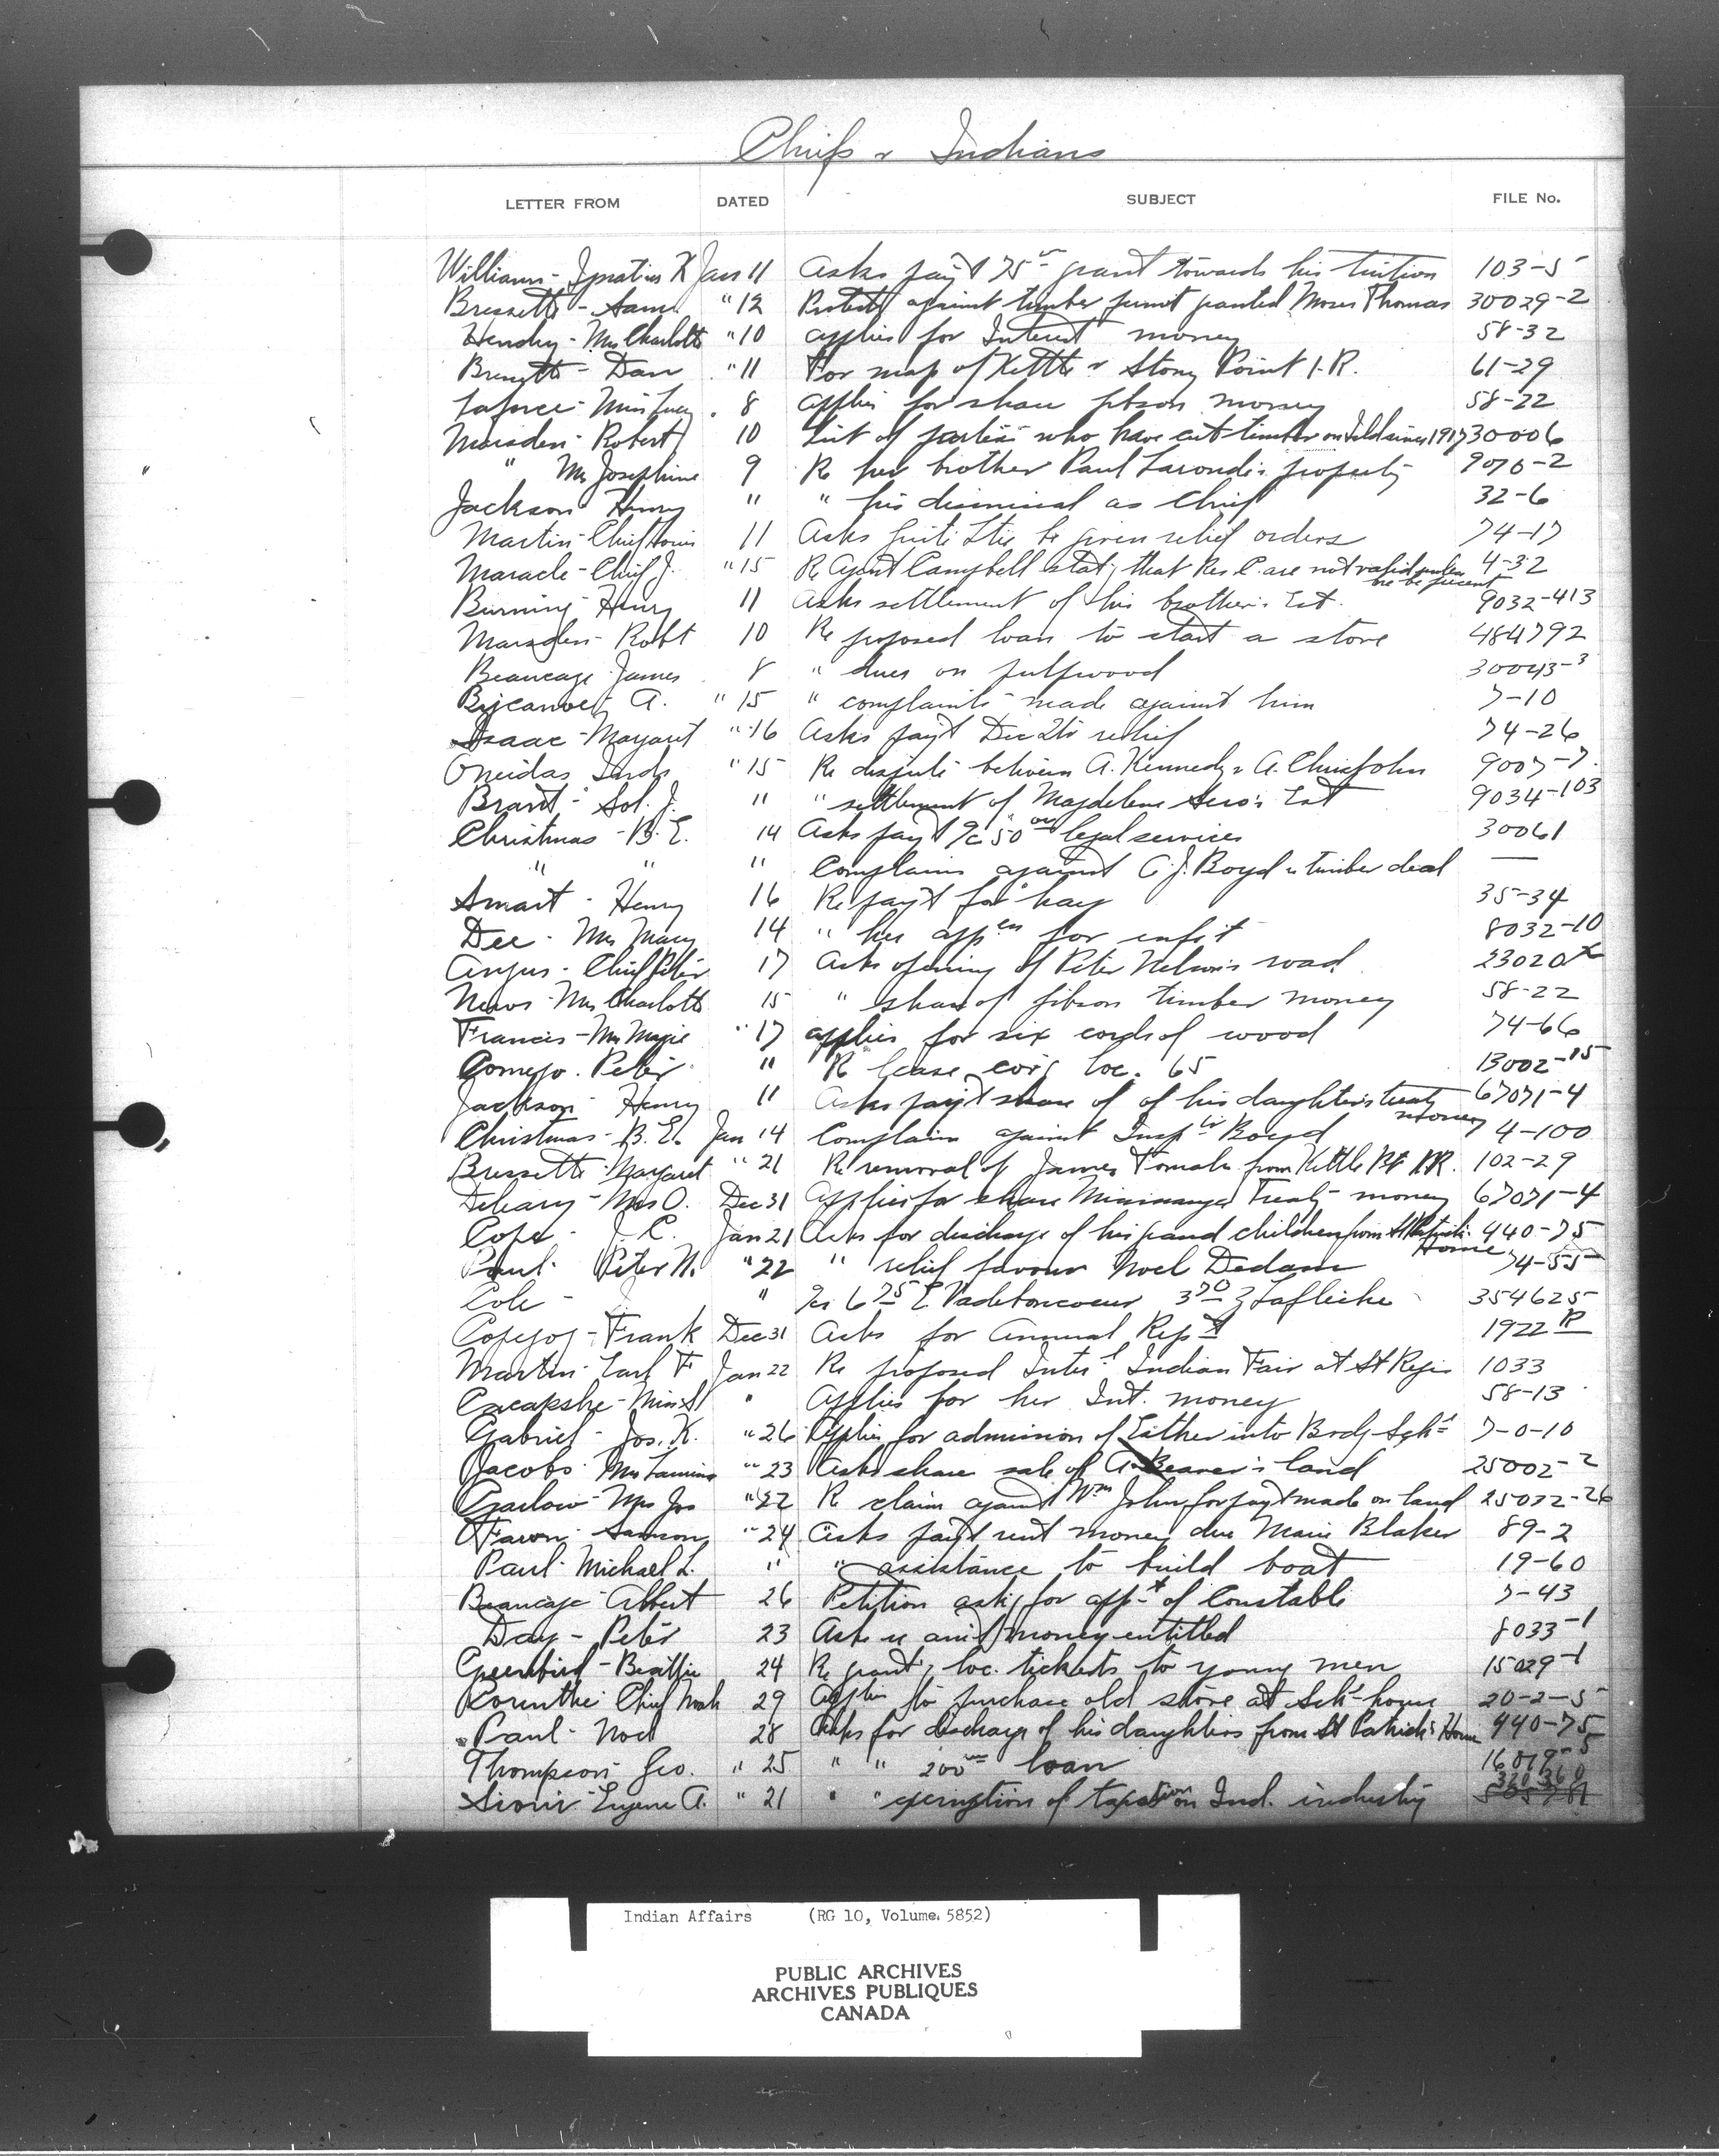 Chiefs & Indians
LETTER FROM DATED SUBJECT FILE No.
Williams - Ignatius K Jan 11 Asks pay't 75 grant towards his tuition 103-5
Bressette - Sam " 12 Protests against timber permit granted Moses Thomas 30029-2
Hendry - Mrs Charlotte " 10 applies for Interest money 58-32
Bressette - Dan " 11 For map of Kettle & Stony Point I.R. 61-29
Laforce - Miss Lucy " 8 applies for share Gibson money 58-22
Marsden - Robert 10 List of parties who have cut timber on Isld since 1917 30006
" Mrs Josephine 9 Re her brother Paul Laronde's property 9070-2
Jackson Henry " " his dismissal as Chief 32-6
Martin - Chief Louis 11 Asks be given relief orders 74-17
Maracle - Chief J. " 15 Re Agent Campbell stat'g that Res C. are not valid unless 4-32
he be present
Burning Henry 11 Asks settlement of his brother's Est. 9032-413
Marsden - Robt 10 Re proposed loan to start a store 484792
Beaucage James 8 " dues on pulpwood 30043-3
A. " 15 " complaints made against him 7-10
Isaac - Margaret " 16 Asks pay't Dec relief 74-26
Oneidas " 15 Re dispute between A. Kennedy & A. Chrisjohn 9007-7
Brant - Sol. J. " " settlement of Magdelene Sero's Est 9034-103
Christmas - B. E. 14 Asks pay't a/c 50 00 legal services 30061
" " " Complains against C. J. Boyd re timber deal —
Smart - Henry 16 Re pay't for hay 35-34
Dee - Mrs Mary 14 " her app en for enfrt 8032-10
Angus - Chief Peter 17 Asks opening of Peter Nelson's road 23020
Mrs Charlotte 15 " share of Gibson timber money 58-22
Francis - Mrs Mugie " 17 applies for six cords of wood 74-66
Comego - Peter " Re lease cov'g loc. 65 13002-15
Jackson Henry 11 Asks pay't share of of his daughter's treaty 67071-4
money
Christmas - B. E. Jan 14 Complains against Insp tr Boyd 4-100
Bressette Margaret " 21 Re removal of James from Kettle Pt I.R. 102-29
Deleary - Mrs O. Dec 31 Applies for share Mississauga Treaty money 67071-4
Cope - J. C. Jan 21 Asks for discharge of his grand children from St Patrick's 440-75
Home
Paul - Peter N. " 22 " relief favour Noel Dedam 74-55
Cole - J " a/cs 6 75 E Vadeboncoeur 3 70 Z Lafleche 354625
Copegog - Frank Dec 31 Asks for Annual Rep t 1922 R
Martin - Earl F Jan 22 Re proposed Inter l Indian Fair at St Regis 1033
Miss " Applies for her Int. money 58-13
Gabriel - Jos. K. " 26 Applies for admission of Esther into Brdg Sch l 7-0-10
Jacobs - Mrs " 23 Asks share sale of A. Beaver's land 25002-2
Garlow - Mrs Jos " 22 Re claim against Wm John for pay't made on land 25022-26
Fawn - Samson " 24 Asks pay't rent money due Marie Blaker 89-2
Paul - Michael L. " " assistance to build boat 19-60
Beaucage Albert 26 Petition ask'g for app t of Constable 7-43
Day - Peter 23 Asks re am't money entitled 8033-1
Greenbird - Beattie 24 Re grant'g loc. tickets to young men 15029-1
Korenthe Chief Noah 29 Applies to purchase old stove at Sch l house 20-2-5
Paul - Noel 28 Asks for discharge of his daughters from St Patrick's Home 440-75
Thompson Geo. " 25 " " 200 00 loan 16019-5
Sioui - Eugene A. " 21 " " exemption of taxation on Ind. industry
Indian Affairs (RG 10, Volume 5852)
PUBLIC ARCHIVES
ARCHIVES PUBLIQUES
CANADA